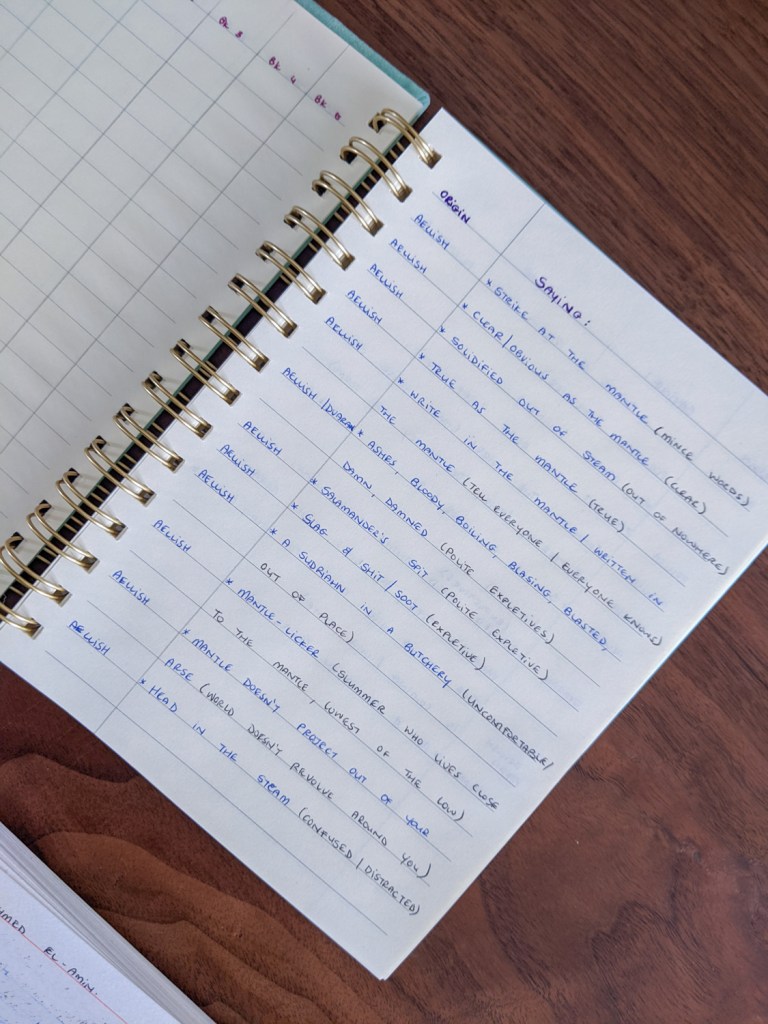 BK 3
BK 4
BK 5
ORIGIN SAYING:
AELLISH * STRIKE AT THE MANTLE (MINCE WORDS)
AELLISH * CLEAR/OBVIOUS AS THE MANTLE (CLEAR)
AELLISH * SOLIDIFIED OUT OF STEAM (OUT OF NOWHERE)
AELLISH * TRUE AS THE MANTLE (TRUE)
AELLISH * WRITE IN THE MANTLE / WRITTEN IN
THE MANTLE (TELL EVERYONE / EVERYONE KNOWS)
AELLISH / * ASHES, BLOODY, BOILING, BLASING, BLASTED,
DAMN, DAMNED (POLITE EXPLETIVES)
AELLISH * SALAMANDER'S SPIT (POLITE EXPLETIVE)
AELLISH * SLAG & SHIT/SOOT (EXPLETIVE)
AELLISH * A SUDRIAHN IN A BUTCHERY (UNCOMFORTABLE/
OUT OF PLACE)
AELLISH * MANTLE-LICKER (SLUMMER WHO LIVES CLOSE
TO THE MANTLE, LOWEST OF THE LOW)
AELLISH * MANTLE DOESN'T PROJECT OUT OF YOUR
ARSE (WORLD DOESN'T REVOLVE AROUND YOU)
AELLISH * HEAD IN THE STEAM (CONFUSED / DISTRACTED)
EL-AMIN.